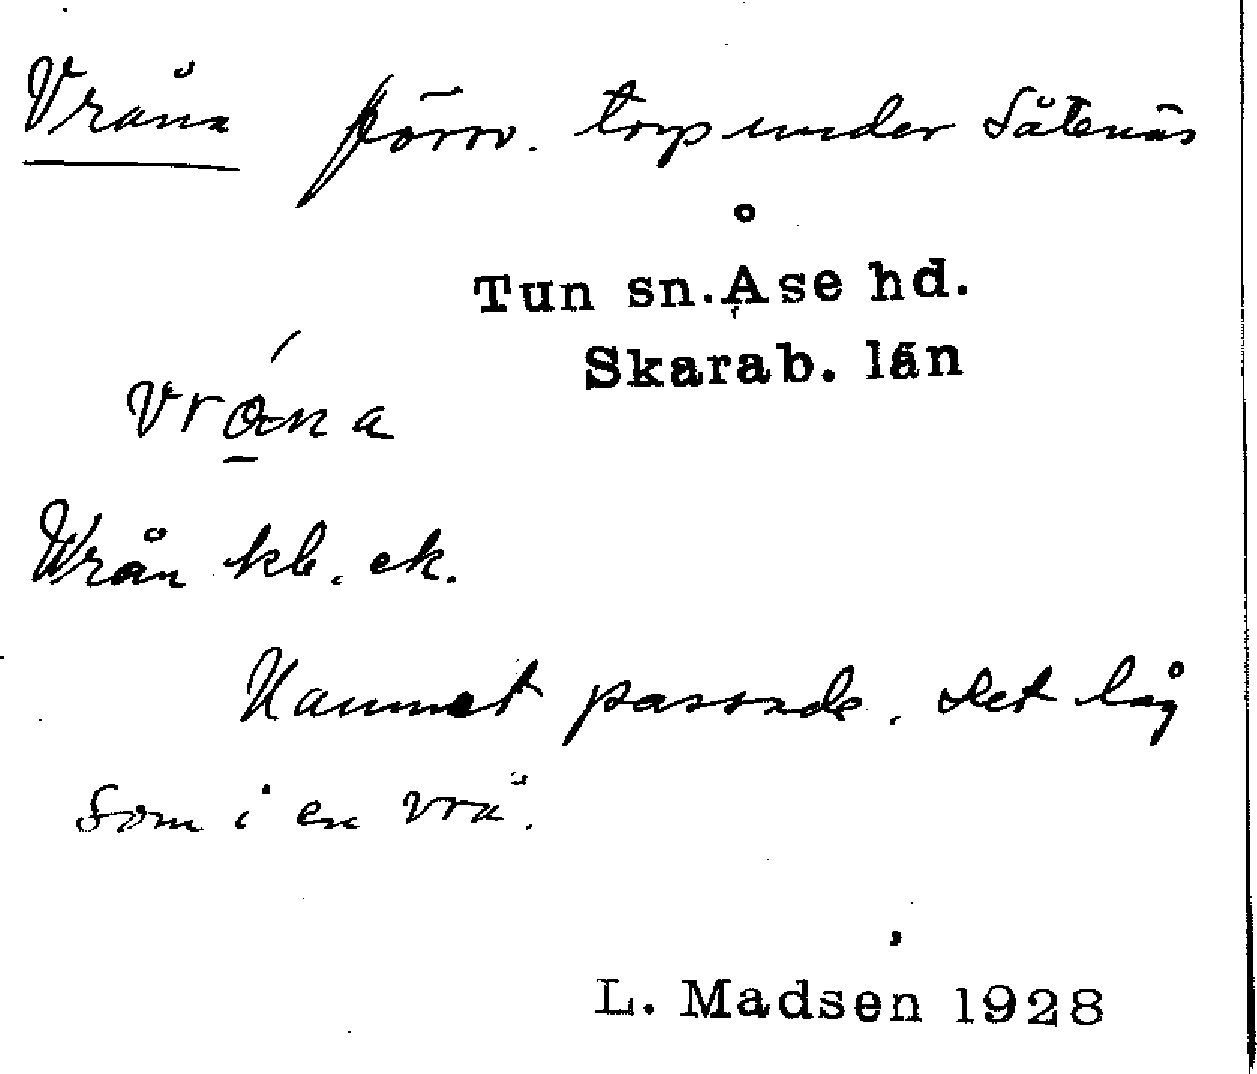 Vråna förrv. torp under Såtenäs
Tun sn. Åse hd.
Skarab. län
vrǻna
Wrån kb. ek.
Namnet passade. Det låg
som i en vrå.
L. Madsen 1928